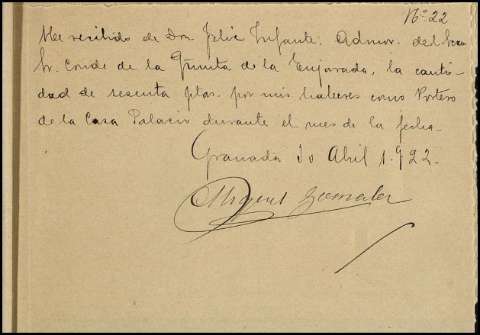 Nº 22
He recibido de Don Felix Infante, Admor. del Excmo
Sr. Conde de la Quinta de la Enjarada, la canti-
dad de sesenta ptas. por mis haberes como Portero
de la Casa Palacio durante el mes de la fecha.
Granada 30 Abril 1.922.
Miguel Gonzalez